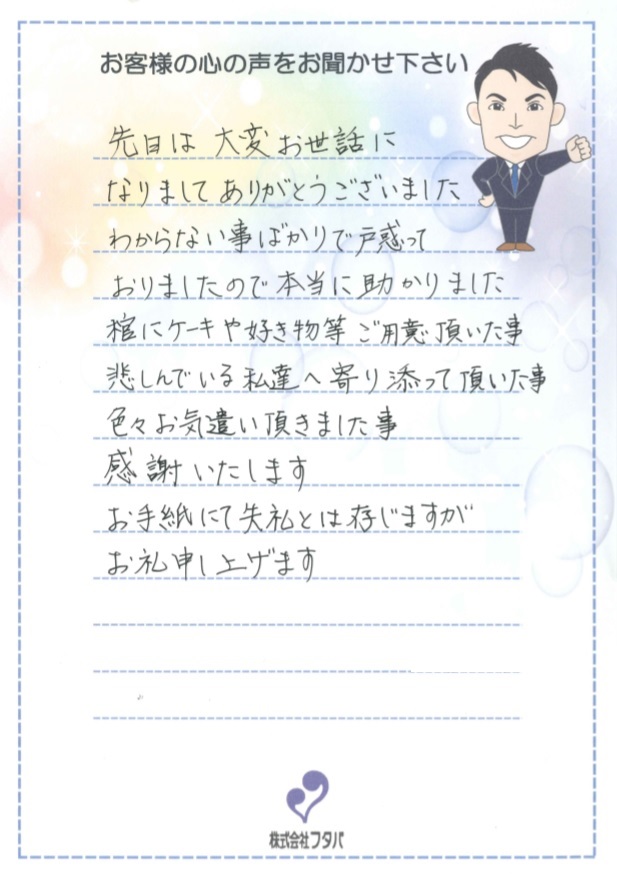 お客様の心の声をお聞かせ下さい
先日は 大変お世話に
なりまして ありがとうございました
わからない事ばかりで戸惑って
おりましたので 本当に助かりました
棺にケーキや好き物等 ご用意頂いた事
悲しんでいる私達へ寄り添って頂いた事
色々お気遣い頂きました事
感謝いたします
お手紙にて失礼とは存じますが
お礼申し上げます
株式会社フタバ